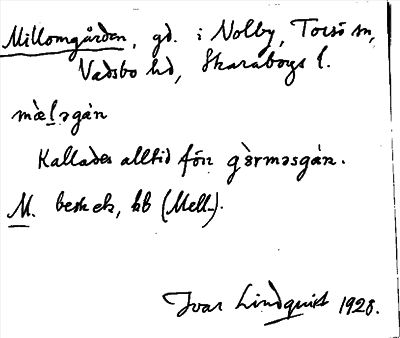 Millomgården, gd. i Nolby, Torsö sn,
Vadsbo hd, Skaraborgs l.
mæ̀l̠əgán
Kallades alltid fön gə̀rməsgán.
M. besk ek, kb (Mell-).
Ivar Lindquist 1928.